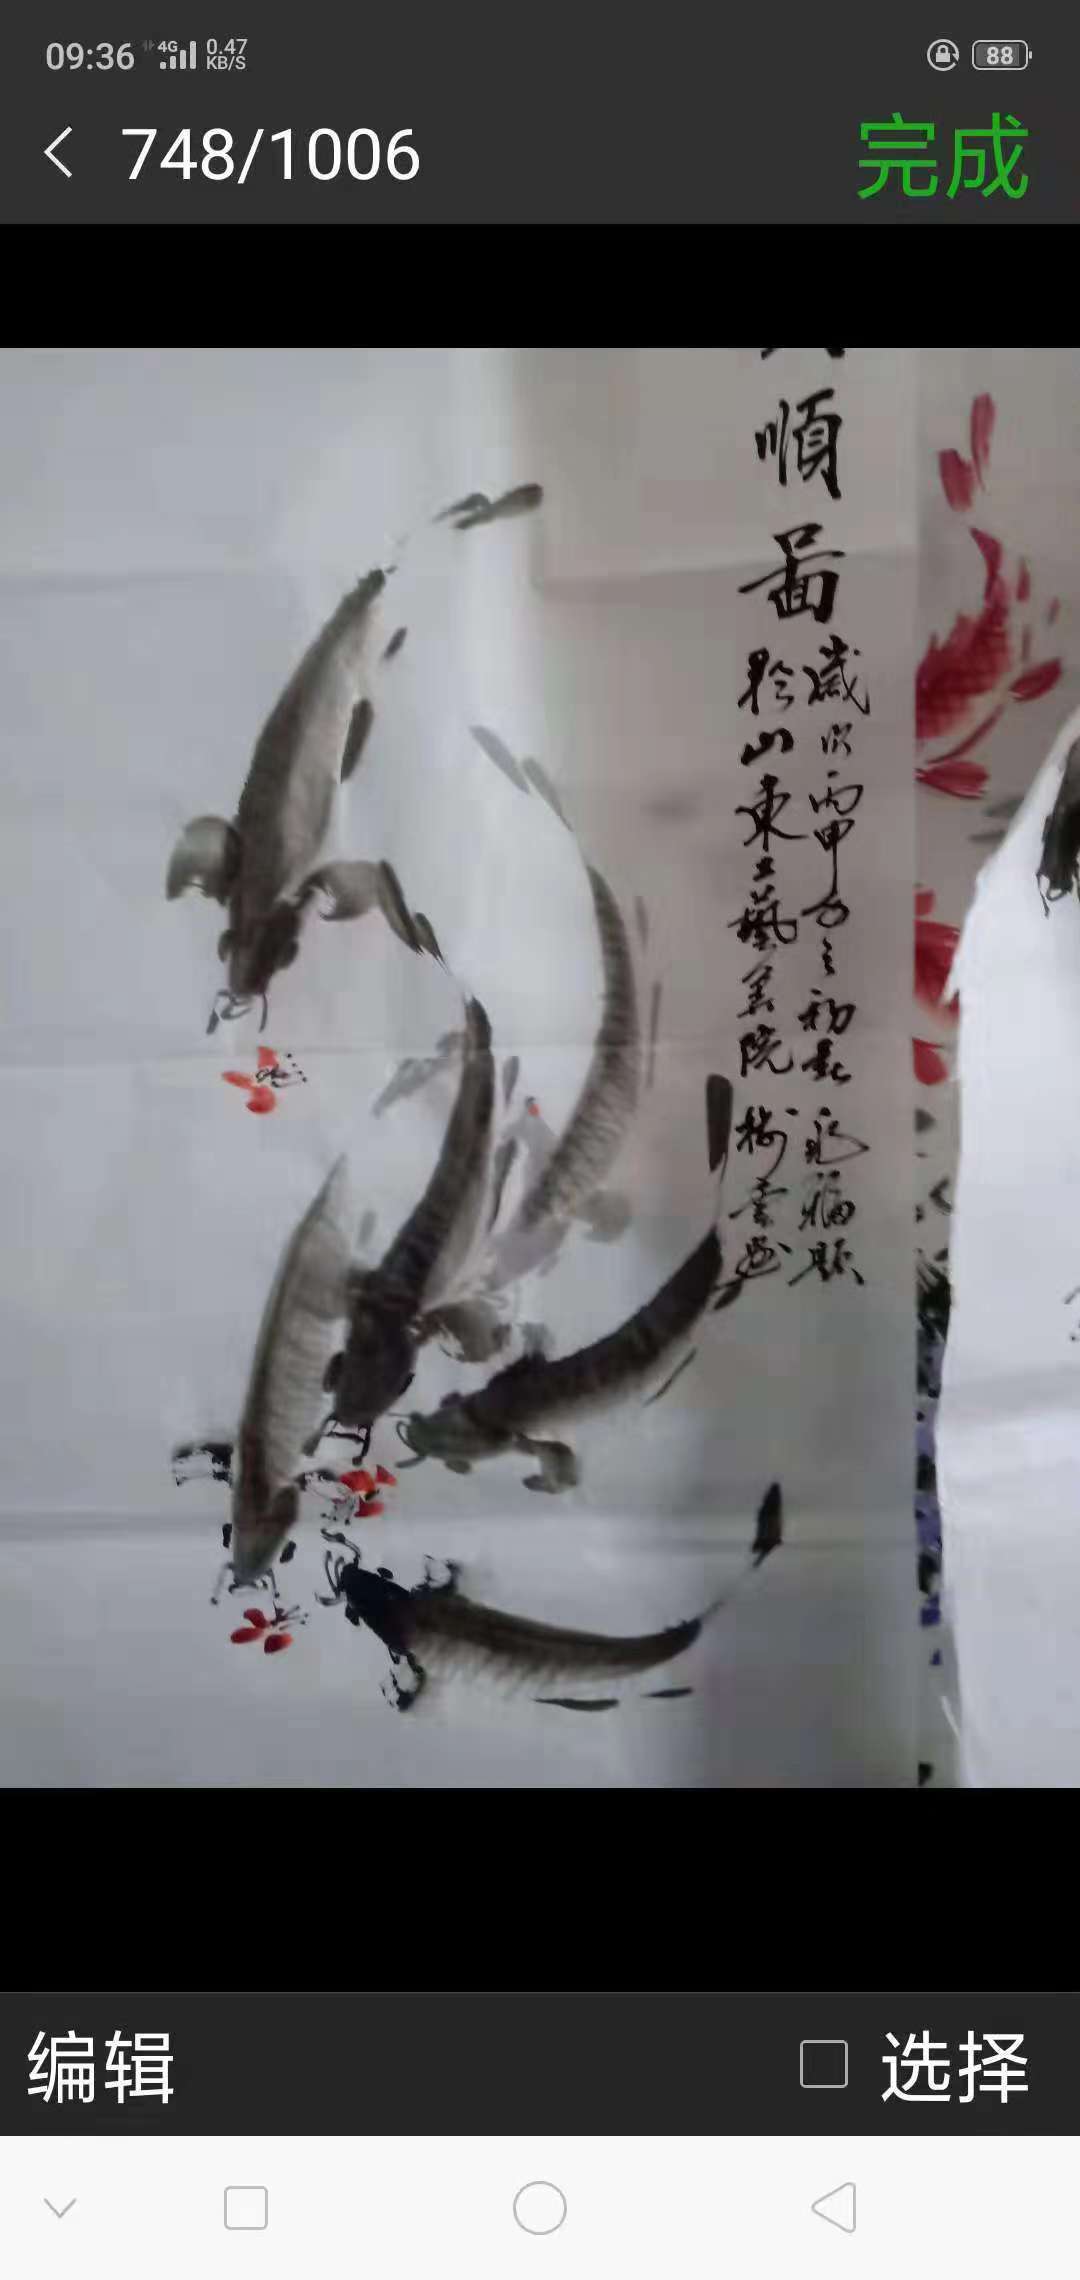 09:36 4G 0.47 KB/S 88
748/1006 完成
順啚
歲次丙申年之初春 永福題
於山東工藝美院 樹雲画
编辑 选择